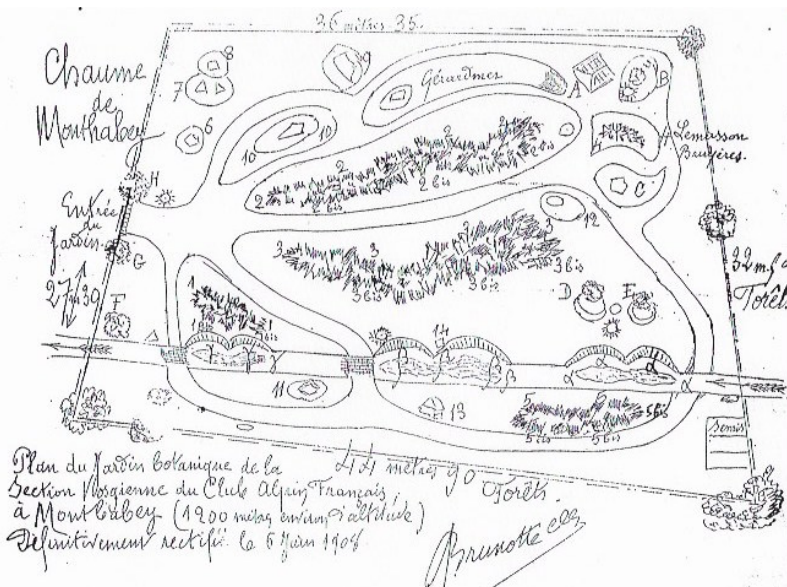 36 mètres 35.
Chaume
de
Monthabey
8
7
9
Gérardmer
A
B
6
10
10
2
2
2
2
2 bis
2 bis
2 bis
4
Lemasson
Bruyères.
H
C
Entrée
du
Jardin
G
12
3
3
3
3 bis
3 bis
3 bis
D
E
32 m.
Forêts
27 m 30
F
1
1
1 bis
14
γ
β
β
β
α
α
α
11
13
5
5
5 bis
5 bis
5 bis
Semis
44 mètres 90
Forêts.
Plan du Jardin botanique de la
Section Vosgienne du Club Alpin Français,
à Monthabey (1200 mètres environ d'altitude)
Définitivement rectifié le 6 Juin 1908
Brunotte